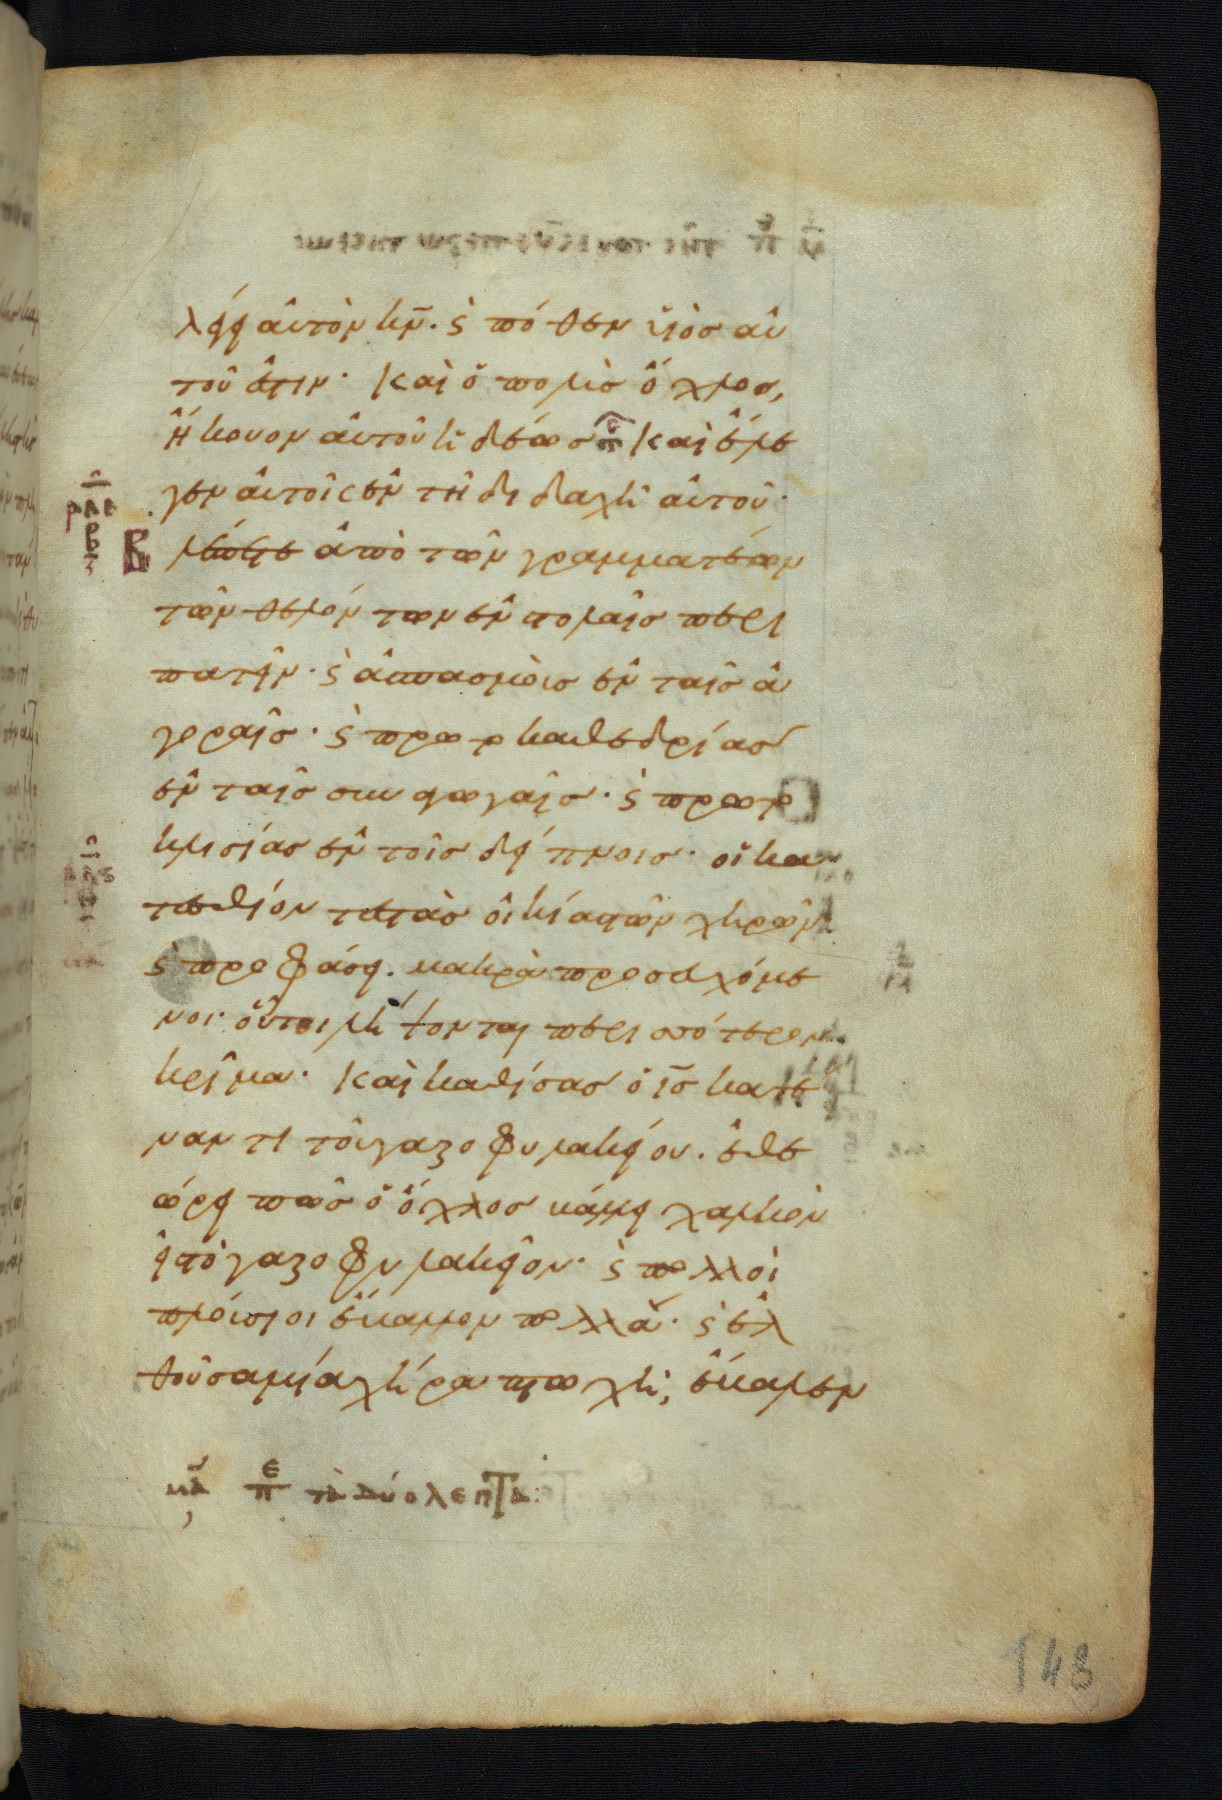 λέγει αὐτὸν κν̅· ϛ πόθεν υἱὸσ αὐ
τοῦ ἐστιν· Καὶ ὁ πολὺσ ὄχλοσ,
ἤκουον αὐτοῦ ἡδέωσ Καὶ ἔλε
γεν αὐτοῖς ἐν τῆ διδαχῆ αὐτοῦ·
ρλε
β
βλέπετε ἀπὸ τῶν γραμματέων
τῶν θελόντων ἐν στολαῖσ περι
πατεῖν· ϛ ἀσπασμοὺσ ἐν ταῖσ ἀ
γοραῖσ· ϛ πρωτοκαθεδρίασ
ἐν ταῖσ συναγωγαῖσ· ϛ πρωτο
κλισίασ ἐν τοῖσ δείπνοισ· οἱ κα
τεσθίοντεσ τὰσ οἰκίασ τῶν χηρῶν
ϛ προφάσει μακρὰ προσευχόμε
νοι· οὗτοι λήψονται περισσότερον
κρῖμα· Καὶ καθίσασ ὁ ισ̅ κατέ
ναντι τοῦ γαζοφυλακείου· ἐθε
ώρει πῶσ ὁ ὄχλοσ βάλλει χαλκὸν
εἰσ τὸ γαζοφυλακεῖον· ϛ πολλοὶ
πλούσιοι ἔβαλλον πολλά· ϛ ἐλ
θοῦσα μία χήρα πτωχὴ, ἔβαλεν
μα πε τὰ δύο λεπτά:
143